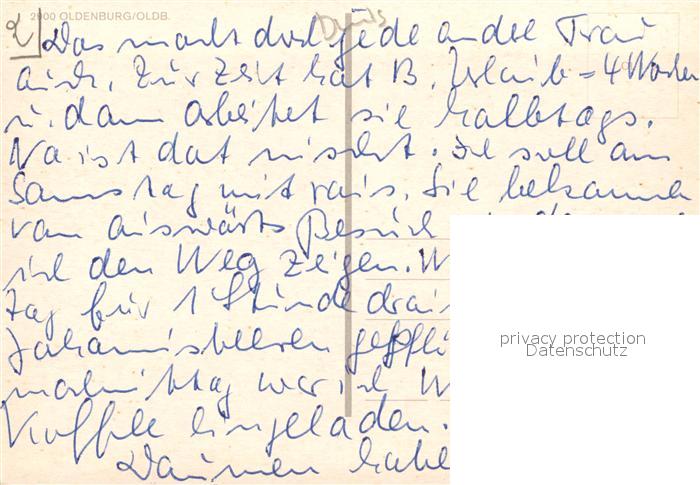 2900 OLDENBURG/OLDB.
2 Das macht doch jede andere Frau
auch. Zur Zeit hat B. Urlaub = 4 Wochen
u. dann arbeitet sie halbtags.
Na ist dat nischt. Ich soll am
Samstag mit rais. Sie bekamen
von auswärts Besuch
ich den Weg zeigen. W
tag für 1 Stunde drau
Johannisbeeren gepflü
nachmittag war ich
Kaffee eingeladen.
Daumen habe
privacy protection
Datenschutz